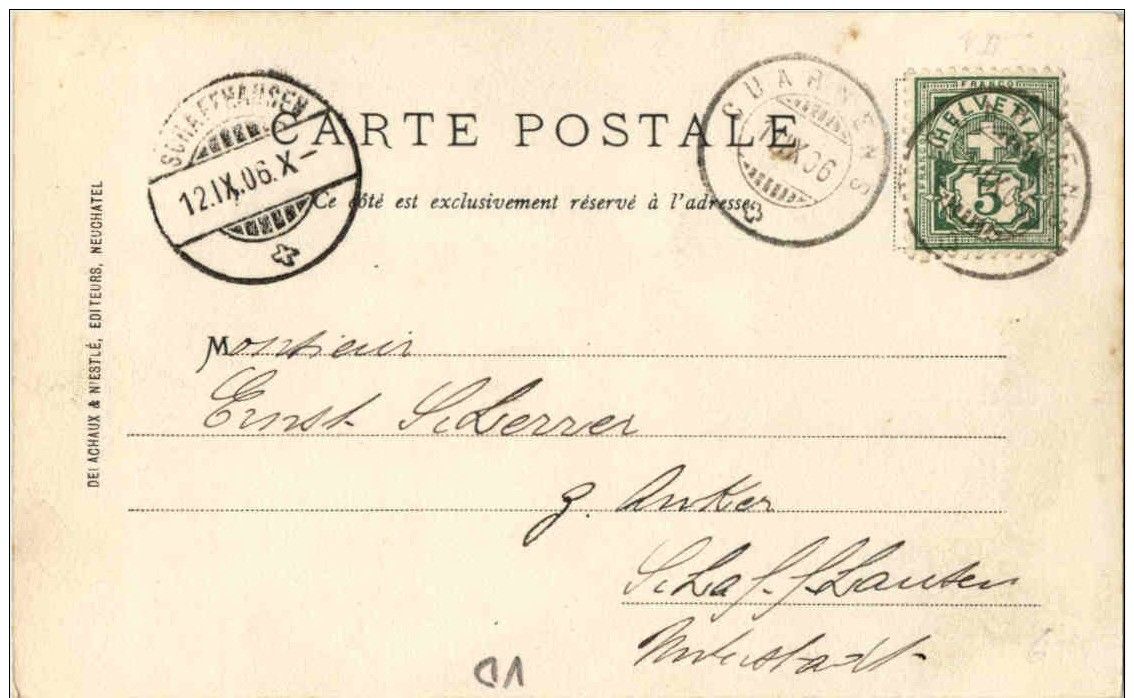 CARTE POSTALE
Ce côté est exclusivement réservé à l'adresse.
SCHAFFHAUSEN
12.IX.06.X-
CUARNENS
IX 06
FRANCO
HELVETIA
5
DELACHAUX & NIESTLÉ, EDITEURS, NEUCHATEL
Monsieur
Ernst Scherrer
z. Anker
Schaffhausen
Unterstadt
VD